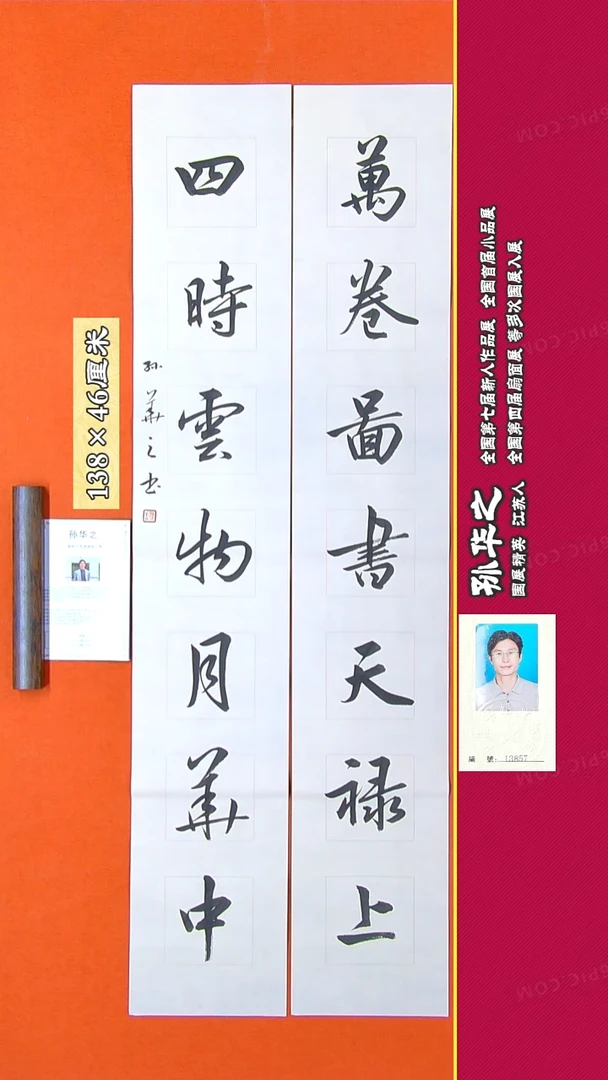 萬卷圖書天禄上
四時雲物月華中
孙華之书
138×46厘米
孙华之
孙华之
國展精英 江苏人
全国第七届新人作品展 全国首届小品展
全国第四届扇面展 等多次國展入展
編 號：13857